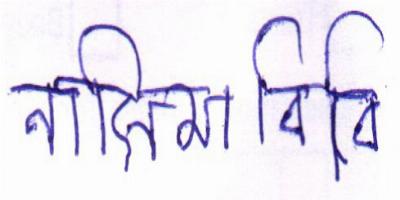 নাজিমা বিবি